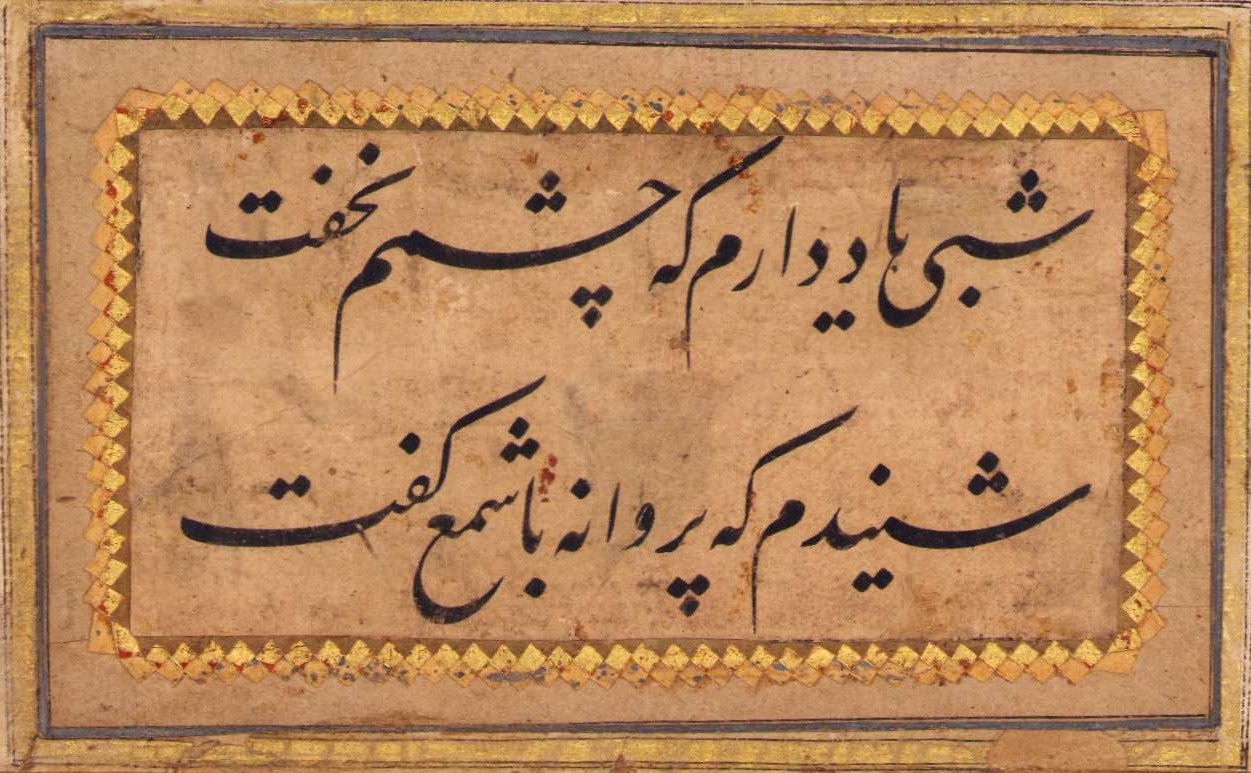 شبی یاد دارم که چشمم نخفت
شنیدم که پروانه با شمع گفت